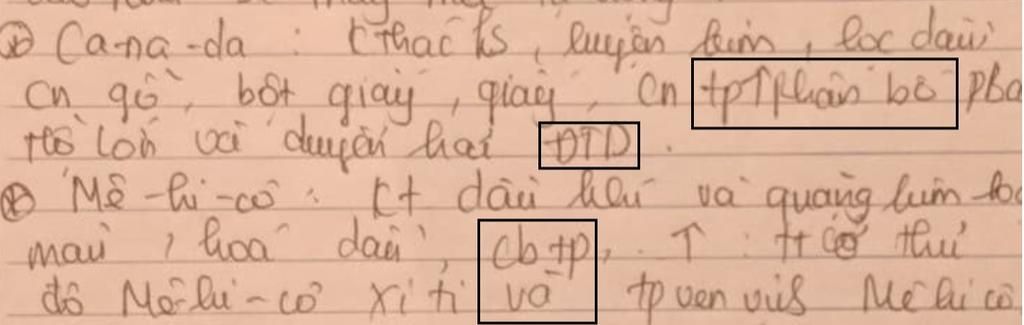 ⊛ Ca-na-da : kthác ks, luyện kim, lọc dầu
CN gỗ, bột giấy, giấy, CN tp↑phân bố phía
Hồ lớn và duyên hải ĐTD.
⊛ Mê-hi-cô : kt dầu khí và quặng kim loại
màu, hoá dầu, cb tp, ↑ : ttcơ thủ
đô Mê-hi-cô Xi ti và tp ven vịnh Mê hi cô